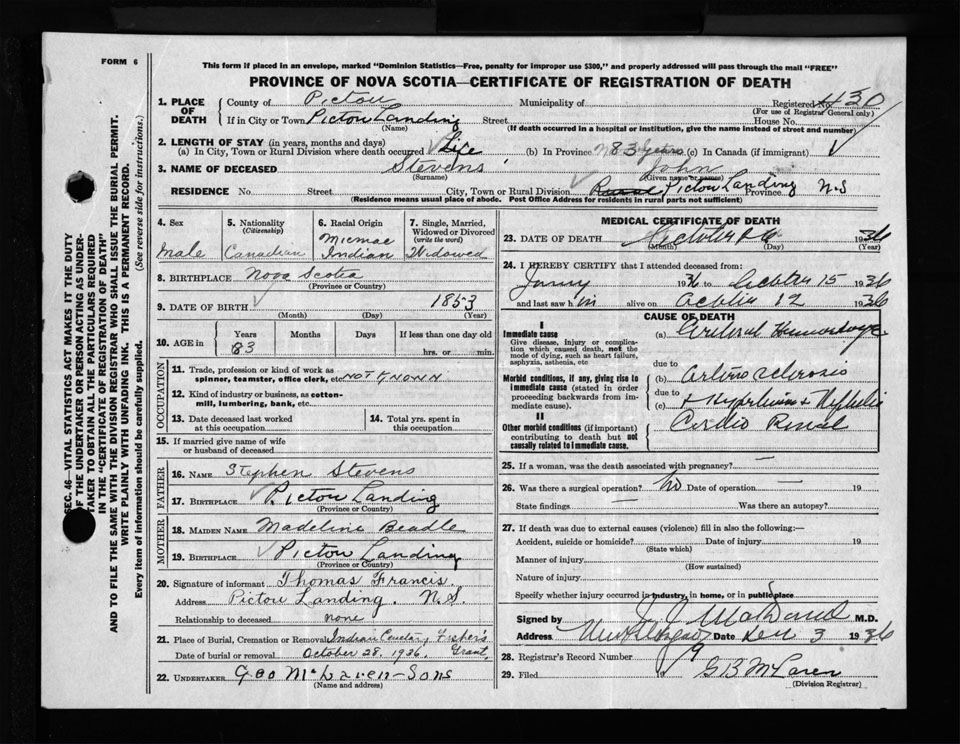 FORM 6
This form if placed in an envelope, marked "Dominion Statistics—Free, penalty for improper use $300," and properly addressed will pass through the mail "FREE"
PROVINCE OF NOVA SCOTIA—CERTIFICATE OF REGISTRATION OF DEATH
1. PLACE OF DEATH County of Pictou Municipality of Registered No. 430
(For use of Registrar General only)
If in City or Town Pictou Landing Street House No.
(Name) (If death occurred in a hospital or institution, give the name instead of street and number)
2. LENGTH OF STAY (in years, months and days)
(a) In City, Town or Rural Division where death occurred Life (b) In Province 83 years (c) In Canada (if immigrant)
3. NAME OF DECEASED Stevens John
(Surname) (Given name or names)
RESIDENCE No. Street City, Town or Rural Division Rural Pictou Landing Province N.S
(Residence means usual place of abode. Post Office Address for residents in rural parts not sufficient)
4. Sex Male
5. Nationality (Citizenship) Canadian
6. Racial Origin Micmac Indian
7. Single, Married, Widowed or Divorced (write the word) Widowed
8. BIRTHPLACE Nova Scotia
(Province or Country)
9. DATE OF BIRTH 1853
(Month) (Day) (Year)
10. AGE in Years Months Days If less than one day old
83 hrs. or min.
OCCUPATION
11. Trade, profession or kind of work as spinner, teamster, office clerk, etc. NOT KNOWN
12. Kind of industry or business, as cotton-mill, lumbering, bank, etc.
13. Date deceased last worked at this occupation
14. Total yrs. spent in this occupation
15. If married give name of wife or husband of deceased
FATHER
16. NAME Stephen Stevens
17. BIRTHPLACE Pictou Landing
(Province or Country)
MOTHER
18. MAIDEN NAME Madeline Beadle
19. BIRTHPLACE Pictou Landing
(Province or Country)
20. Signature of informant Thomas Francis.
Address Pictou Landing. N.S.
Relationship to deceased none
21. Place of Burial, Cremation or Removal Indian Fisher's Grant,
Date of burial or removal October 28, 1936.
22. UNDERTAKER Geo McLaren-Sons
(Name and address)
MEDICAL CERTIFICATE OF DEATH
23. DATE OF DEATH October 26 1936
(Month) (Day) (Year)
24. I HEREBY CERTIFY that I attended deceased from:
1936 to 15 1936
and last saw him alive on 12 1936
CAUSE OF DEATH
I
Immediate cause
Give disease, injury or complication which caused death, not the mode of dying, such as heart failure, asphyxia, asthenia, etc
(a) Cerebral Hemorrhage
due to
Morbid conditions, if any, giving rise to immediate cause (stated in order proceeding backwards from immediate cause).
(b) Arterio sclerosis
due to
(c)
II
Other morbid conditions (if important) contributing to death but not causally related to immediate cause.
Cardio Renal
25. If a woman, was the death associated with pregnancy? —
26. Was there a surgical operation? No Date of operation — 19
State findings — Was there an autopsy?
27. If death was due to external causes (violence) fill in also the following:—
Accident, suicide or homicide? Date of injury 19
(State which)
Manner of injury
(How sustained)
Nature of injury
Specify whether injury occurred in industry, in home, or in public place
Signed by M.D.
Address New Glasgow Date 3 1936
28. Registrar's Record Number 9
29. Filed G B McLaren
(Division Registrar)
SEC. 46—VITAL STATISTICS ACT MAKES IT THE DUTY
OF THE UNDERTAKER OR PERSON ACTING AS UNDER-
TAKER TO OBTAIN ALL THE PARTICULARS REQUIRED
IN THE "CERTIFICATE OF REGISTRATION OF DEATH"
AND TO FILE THE SAME WITH THE DIVISION REGISTRAR WHO SHALL ISSUE THE BURIAL PERMIT.
WRITE PLAINLY WITH UNFADING INK. THIS IS A PERMANENT RECORD.
Every item of information should be carefully supplied. (See reverse side for instructions.)